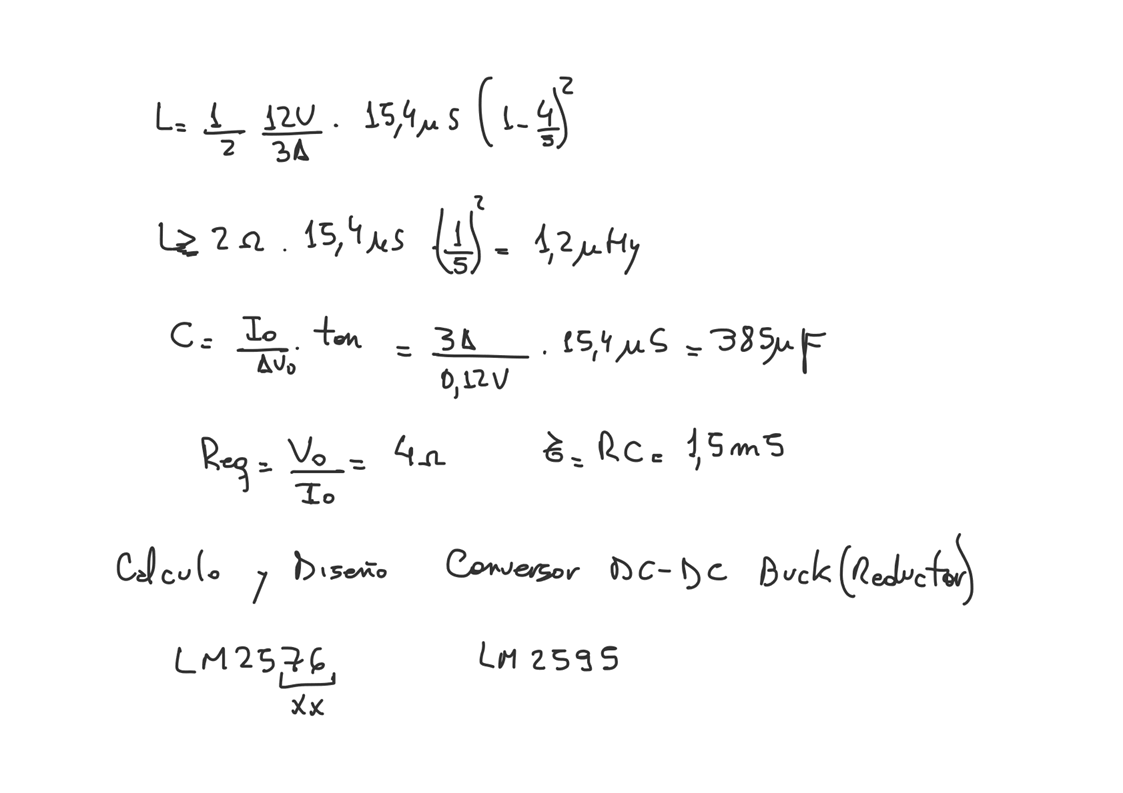 L= 1/2 12V/3A · 15,4μs (1-4/5)²
L≥ 2Ω · 15,4μs (1/5)² = 1,2μHy
C= Io/ΔVo · ton = 3A/0,12V · 15,4μS = 385μF
Req = Vo/Io = 4Ω   = RC= 1,5mS
Calculo y Diseño Conversor DC-DC Buck (Reductor)
LM2576 LM2595
xx